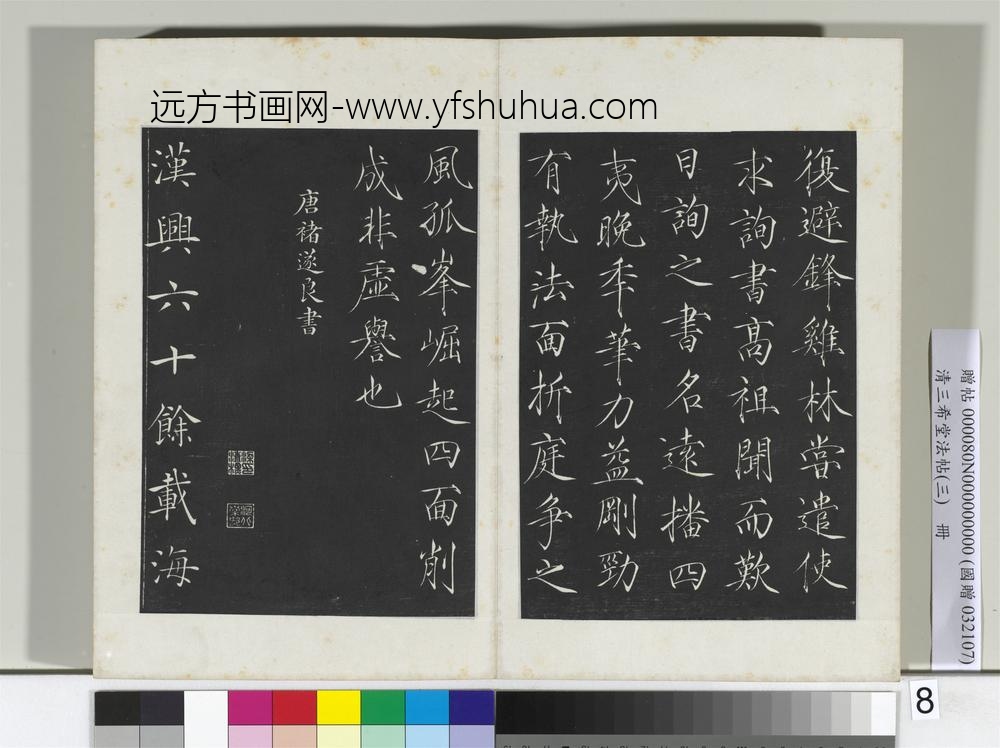 远方书画网-www.yfshuhua.com
復避鋒雞林嘗遣使
求詢書高祖聞而歎
曰詢之書名遠播四
夷晚年華力益剛勁
有執法面折庭爭之
風孤峯崛起四面削
成非虛譽也
唐褚遂良書
漢興六十餘載海
贈帖 000080N000000000 (國贈 032107)
清三希堂法帖(三) 冊
8